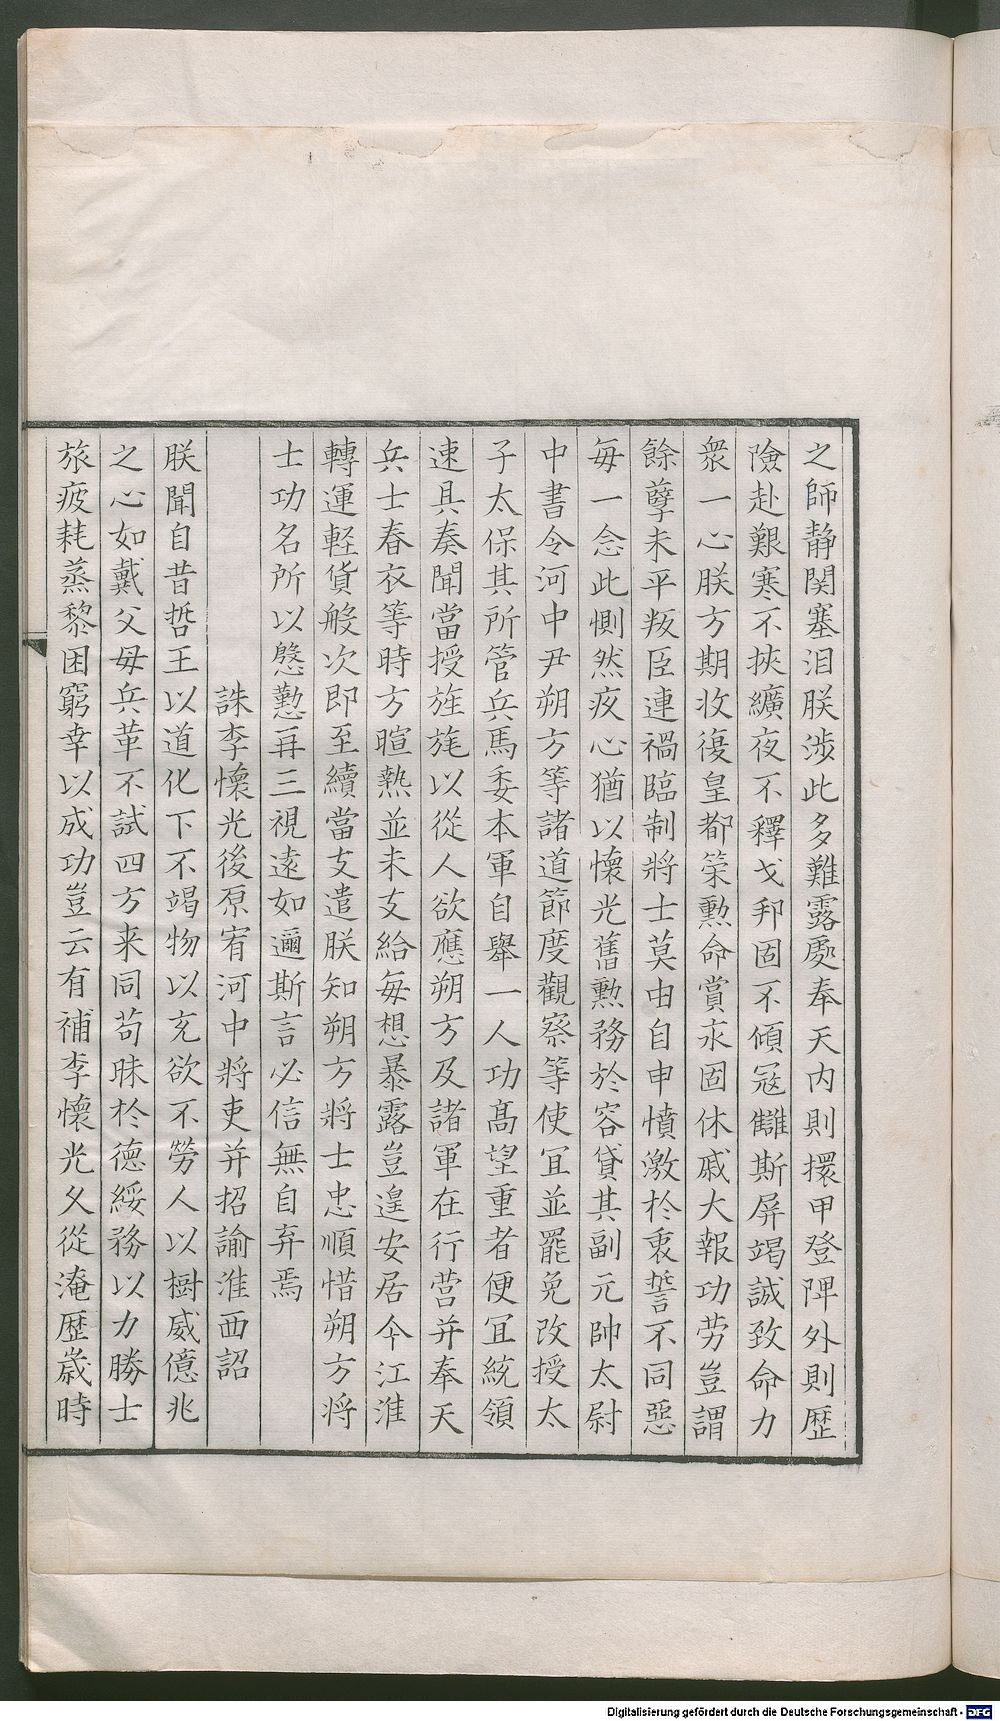 之師静関塞泪朕涉此多難露處奉天内則擐甲登陴外則歷
險赴艱寒不挾纊夜不釋戈邦固不傾冦讎斯屏竭誠致命力
衆一心朕方期收復皇都策勲命賞永固休戚大報功劳豈謂
餘孽未平叛臣連禍臨制將士莫由自申憤激於衷誓不同惡
每一念此惻然疚心猶以懷光舊勲務於容貸其副元帥太尉
中書令河中尹朔方等諸道節度觀察等使冝並罷免改授太
子太保其所管兵馬委本軍自舉一人功髙望重者便冝統領
速具奏聞當授旌旄以從人欲應朔方及諸軍在行營并奉天
兵士春衣等時方暄熱並未支給每想暴露豈遑安居今江淮
轉運軽貨般次即至續當支遣朕知朔方將士忠順惜朔方將
士功名所以慇懃再三視遠如邇斯言必信無自弃焉
誅李懷光後原宥河中將吏并招諭淮西詔
朕聞自昔哲王以道化下不竭物以充欲不勞人以樹威億兆
之心如戴父母兵革不試四方来同苟昧於德綏務以力勝士
旅疲耗蒸黎困窮幸以成功豈云有補李懷光久從淹歷歲時
Digitalisierung gefördert durch die Deutsche Forschungsgemeinschaft - DFG